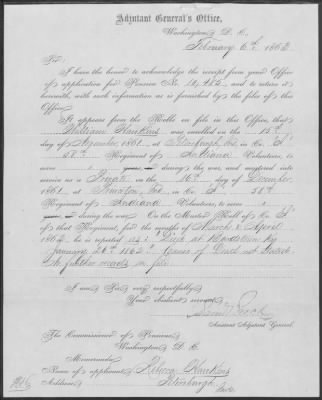 Adjutant General's Office,
Washington, D. C.,
February 6th, 186
Sir:
I have the honor to acknowledge the receipt from your Office
of application for Pension No. and to return it
herewith, with such information as is furnished by the files of this
Office.
It appears from the Rolls on file in this Office, that
William Hawkins was enrolled on the 15th
day of 1861, at Petersburgh, Ind, in Co.
58th Regiment of Indiana Volunteers, to
serve years, or during the war, and mustered into
service as a Private on the 16th day of December
1861, at Princeton, Ind, in Co. 58th
Regiment of Indiana Volunteers, to serve
years, or during the war. On the Muster Roll of Co.
of that Regiment, for the months of March & April
1862, he is reported Died at Bardstown Ky
January 26th 1862. Cause of Death not Stated
No further records on file
I am, Sir, very respectfully,
Your obedient servant,
Assistant Adjutant General.
The Commissioner of Pensions
Washington, D. C.
Memoranda.
Name of applicant, Hawkins
Address, Petersburgh